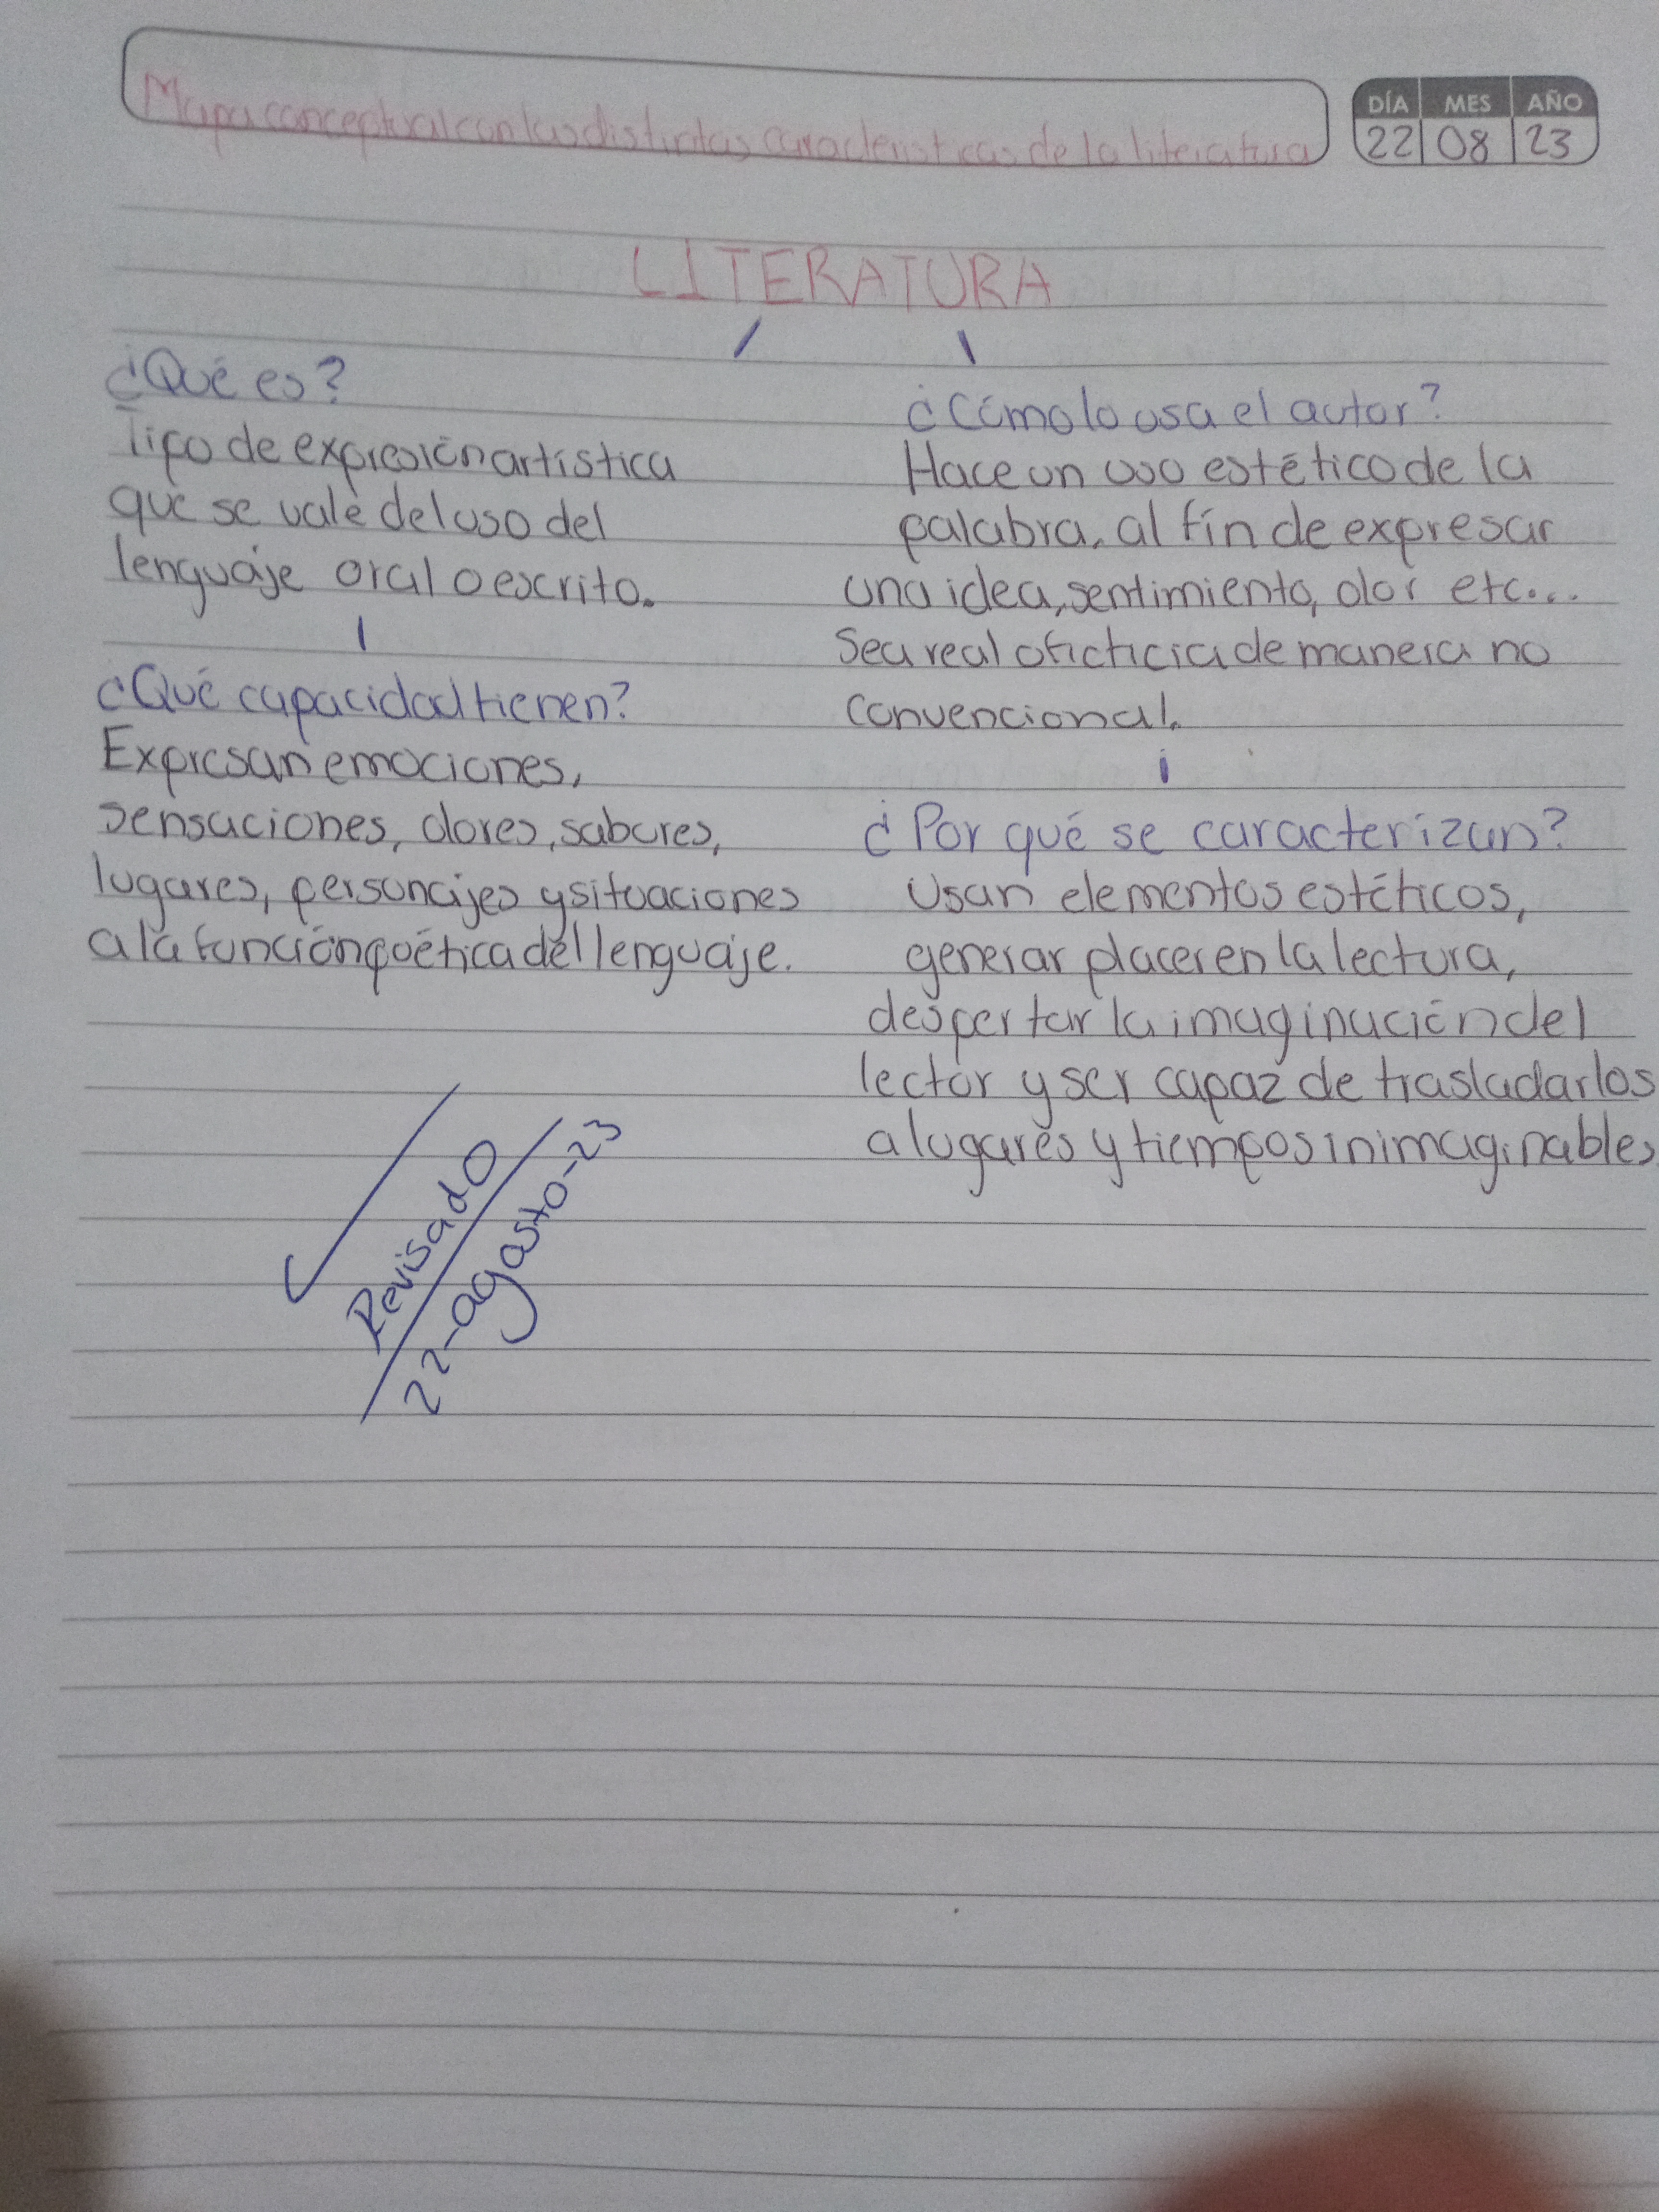 Mapa conceptual con las distintas características de la literatura
DÍA MES AÑO
22 08 23
LITERATURA
¿Qué es?
Tipo de expresión artística
que se vale del uso del
lenguaje oral o escrito.
¿Qué capacidad tienen?
Expresan emociones,
sensaciones, olores, sabores,
lugares, personajes y situaciones
a la función poética del lenguaje.
¿Cómo lo usa el autor?
Hace un uso estético de la
palabra, al fin de expresar
una idea, sentimiento, olor etc...
Sea real o ficticia de manera no
convencional.
¿Por qué se caracterizan?
Usan elementos estéticos,
generar placer en la lectura,
despertar la imaginación del
lector y ser capaz de trasladarlos
a lugares y tiempos inimaginables
Revisado
22-agosto-23